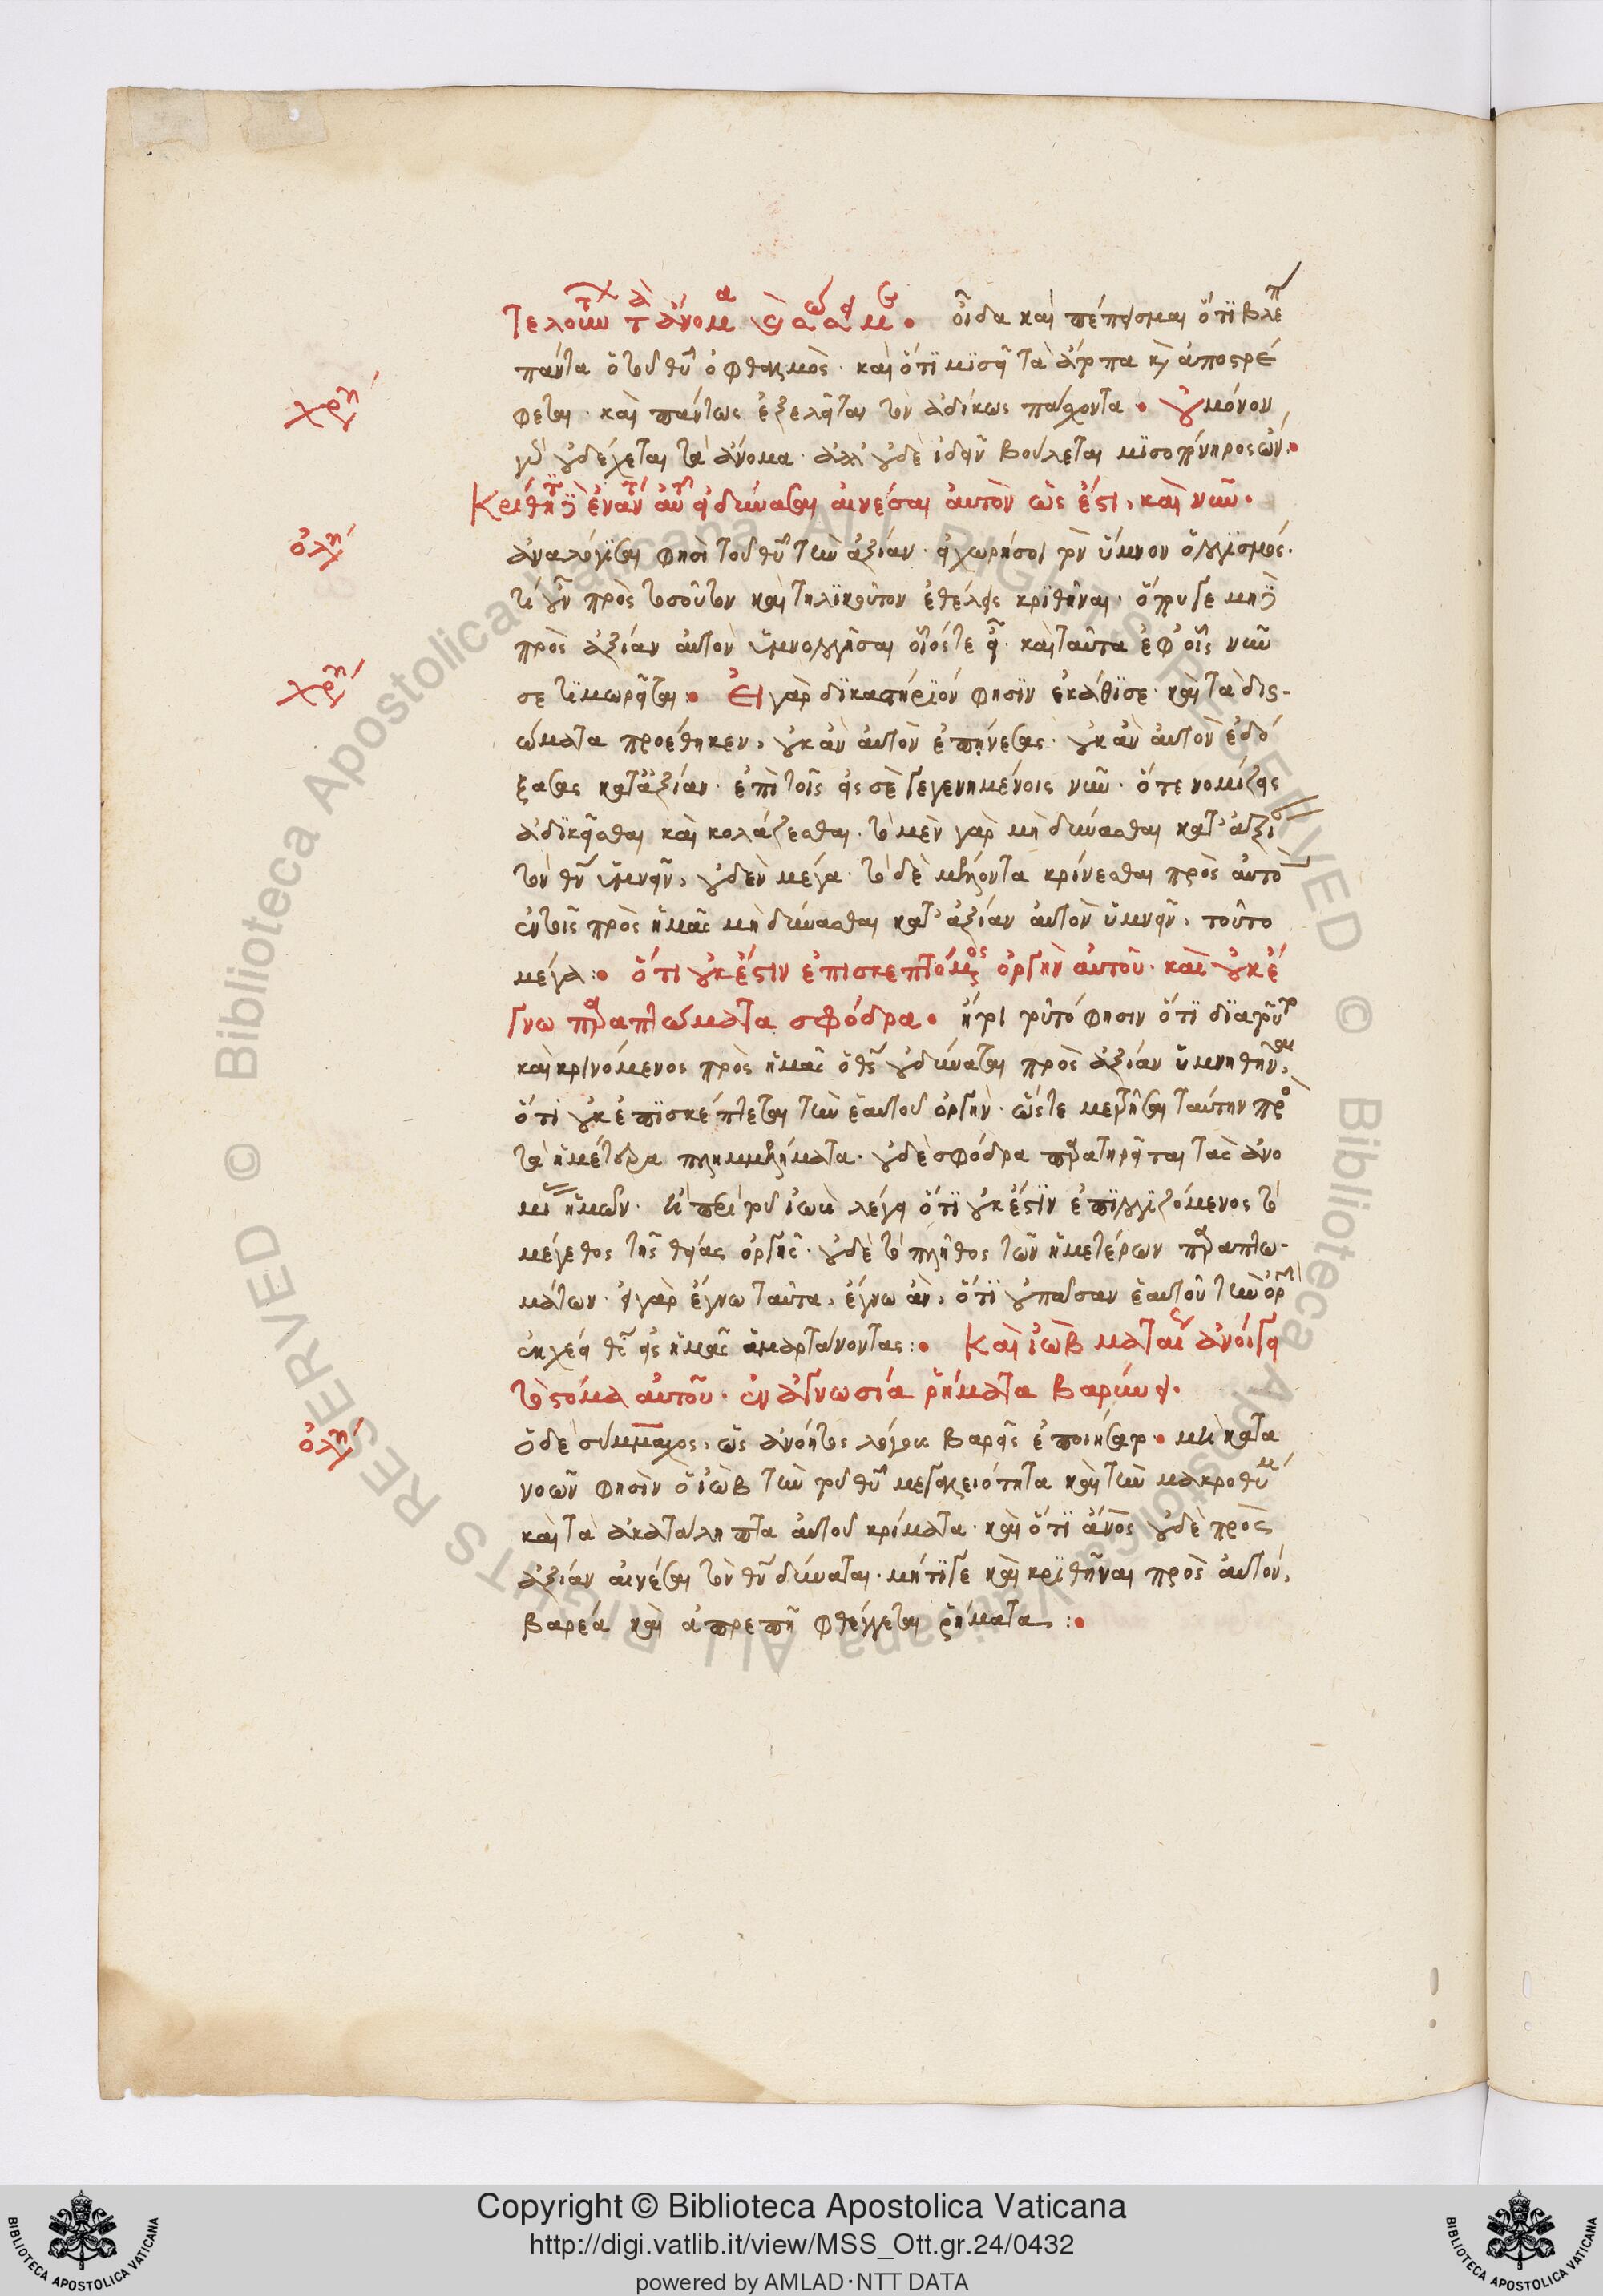 τελούντων τὰ ἄνομα καὶ σώσει με. οἶδα καὶ πέπεισμαι ὅτι βλέπει
πάντα ὁ τοῦ θυ ὀφθαλμὸς. καὶ ὅτι μισεῖ τὰ ἄτοπα καὶ ἀποστρέ
φεται. καὶ πάντως ἐξελεῖται τὸν ἀδίκως πάσχοντα. οὐ μόνον
χρυ
γὰρ οὐ δέχεται τὰ ἄνομα. ἀλλ' οὐδὲ ἰδεῖν βούλεται μισοπόνηρος ὤν.
Κρίθητι δὲ ἐναντίον αὐτοῦ εἰ δύνασαι αἰνέσαι αὐτὸν ὡς ἔστι, καὶ νῦν.
ολυ
ἀναλόγισαι φησὶ τοῦ θυ τὴν ἀξίαν. εἰ χωρήσοι τὸν ὕμνον ὁ λογισμός.
τί οὖν πρὸς τοσοῦτον καὶ τηλικοῦτον ἐθέλεις κριθῆναι. ὅπου γε μηδὲ
πρὸς ἀξίαν αὐτὸν ὑμνολογῆσαι οἷός τε εἶ. καὶ ταῦτα ἐφ' οἷς νῦν
χρυ
σε τιμωρεῖται. Εἰ γὰρ δικαστήριόν φησιν ἐκάθισε. καὶ τὰ δικαι-
ώματα προέθηκεν, οὐκ ἂν αὐτὸν ἐπῄνεσας. οὐκ ἂν αὐτὸν ἐδό
ξασας κατ' ἀξίαν. ἐπὶ τοῖς εἰς σὲ γεγενημένοις νῦν. ὅτε νομίζεις
ἀδικεῖσθαι καὶ κολάζεσθαι. τὸ μὲν γὰρ μὴ δύνασθαι κατ' ἀξίαν
τὸν θν ὑμνεῖν, οὐδὲν μέγα. τὸ δὲ μέλλοντα κρίνεσθαι πρὸς αὐτὸν
ἐν τοῖς πρὸς ἡμᾶς μὴ δύνασθαι κατ' ἀξίαν αὐτὸν ὑμνεῖν, τοῦτο
μέγα: ὅτι οὐκ ἔστιν ἐπισκεπτόμενος ὀργὴν αὐτοῦ. καὶ οὐκ ἔ
γνω παραπτώματα σφόδρα. ἤτοι τοῦτό φησιν ὅτι διὰ τοῦτο
καὶ κρινόμενος πρὸς ἡμᾶς ὁ θς οὐ δύναται πρὸς ἀξίαν ὑμνηθῆναι,
ὅτι οὐκ ἐπισκέπτεται τὴν ἑαυτοῦ ὀργὴν. ὥστε μετρῆσαι ταύτην πρὸς
τὰ ἡμέτερα πλημμελήματα. οὐδὲ σφόδρα παρατηρεῖται τὰς ἀνο
μίας ἡμῶν. ἐπὶ τοῦ ἰὼβ λέγει ὅτι οὐκ ἔστιν ἐπιλογιζόμενος τὸ
μέγεθος τῆς θείας ὀργῆς. οὐδὲ τὸ πλῆθος τῶν ἡμετέρων παραπτω-
μάτων. εἰ γὰρ ἔγνω ταῦτα, ἔγνω ἂν, ὅτι οὐ πᾶσαν ἑαυτοῦ τὴν ὀργὴν
ἐκχέει θς εἰς ἡμᾶς ἁμαρτάνοντας: Καὶ ἰὼβ ματαίως ἀνοίγει
τὸ στόμα αὐτοῦ. ἐν ἀγνωσίᾳ ῥήματα βαρύνει.
ολυ
ὁ δὲ σύμμαχος, ὡς ἀνόητος λόγους βαρεῖς ἐποιήσατο. μὴ κατα
νοῶν φησὶν ὁ ἰὼβ τὴν τοῦ θυ μεγαλειότητα καὶ τὴν μακροθυμίαν
καὶ τὰ ἀκατάληπτα αὐτοῦ κρίματα. καὶ ὅτι ἄνος οὐδὲ πρὸς
ἀξίαν αἰνέσαι τὸν θν δύναται. μήτι γε καὶ κριθῆναι πρὸς αὐτὸν,
βαρέα καὶ ἀπρεπῆ φθέγγεται ῥήματα:
Copyright © Biblioteca Apostolica Vaticana
http://digi.vatlib.it/view/MSS_Ott.gr.24/0432
powered by AMLAD·NTT DATA
BIBLIOTECA APOSTOLICA VATICANA
BIBLIOTECA APOSTOLICA VATICANA
© Biblioteca Apostolica Vaticana ALL RIGHTS RESERVED © Biblioteca Apostolica Vaticana ALL RIGHTS RESERVED